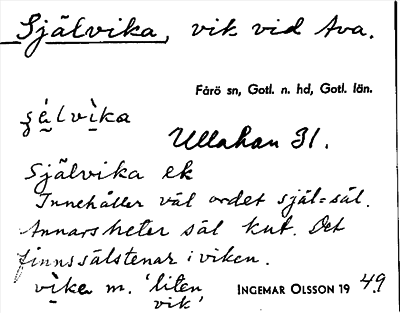 Självika, vik vid Ava.
Fårö sn, Gotl. n. hd, Gotl. län.
Ullahan 31.
Självika ek
Innehåller väl ordet själ=säl.
Annars heter säl kut. Det
finns sälstenar i viken.
vika m. 'liten vik'
INGEMAR OLSSON 1949